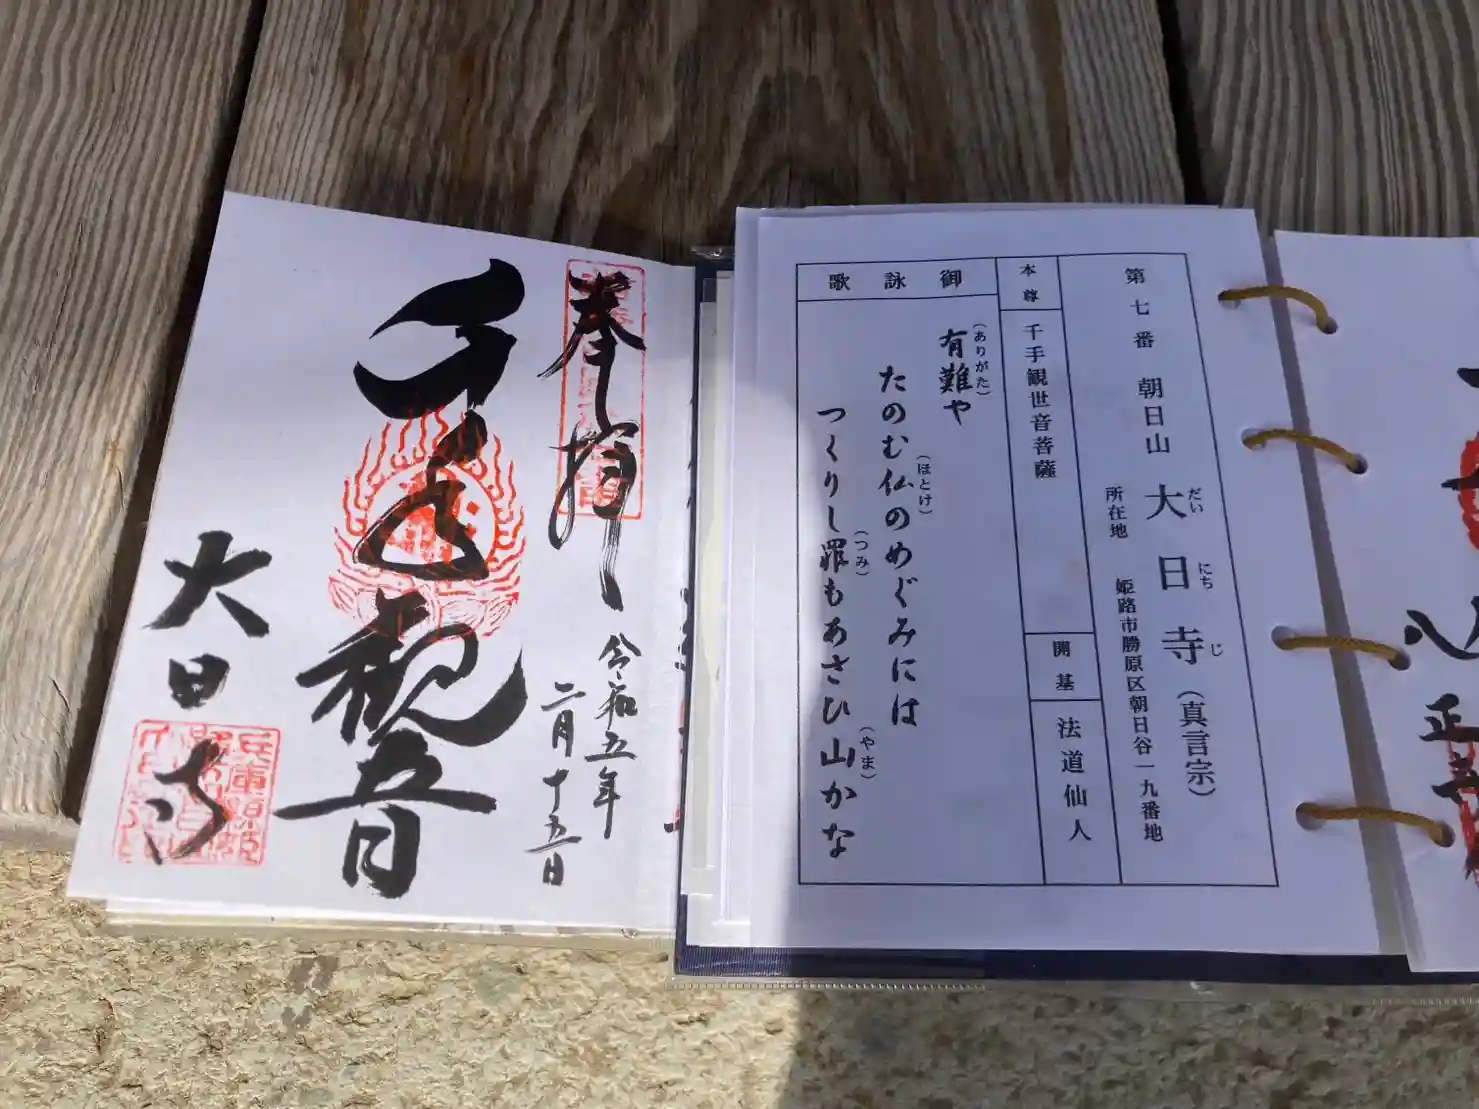 第七番 朝日山 大日寺(真言宗)
だいにちじ
所在地 姫路市勝原区朝日谷一九番地
本尊 千手観世音菩薩
開基 法道仙人
御詠歌
有難や
(ありがた)
たのむ仏のめぐみには
(ほとけ)
つくりし罪もあさひ山かな
(つみ)
(やま)
奉拝
令和五年
二月十五日
千手観音
大日寺